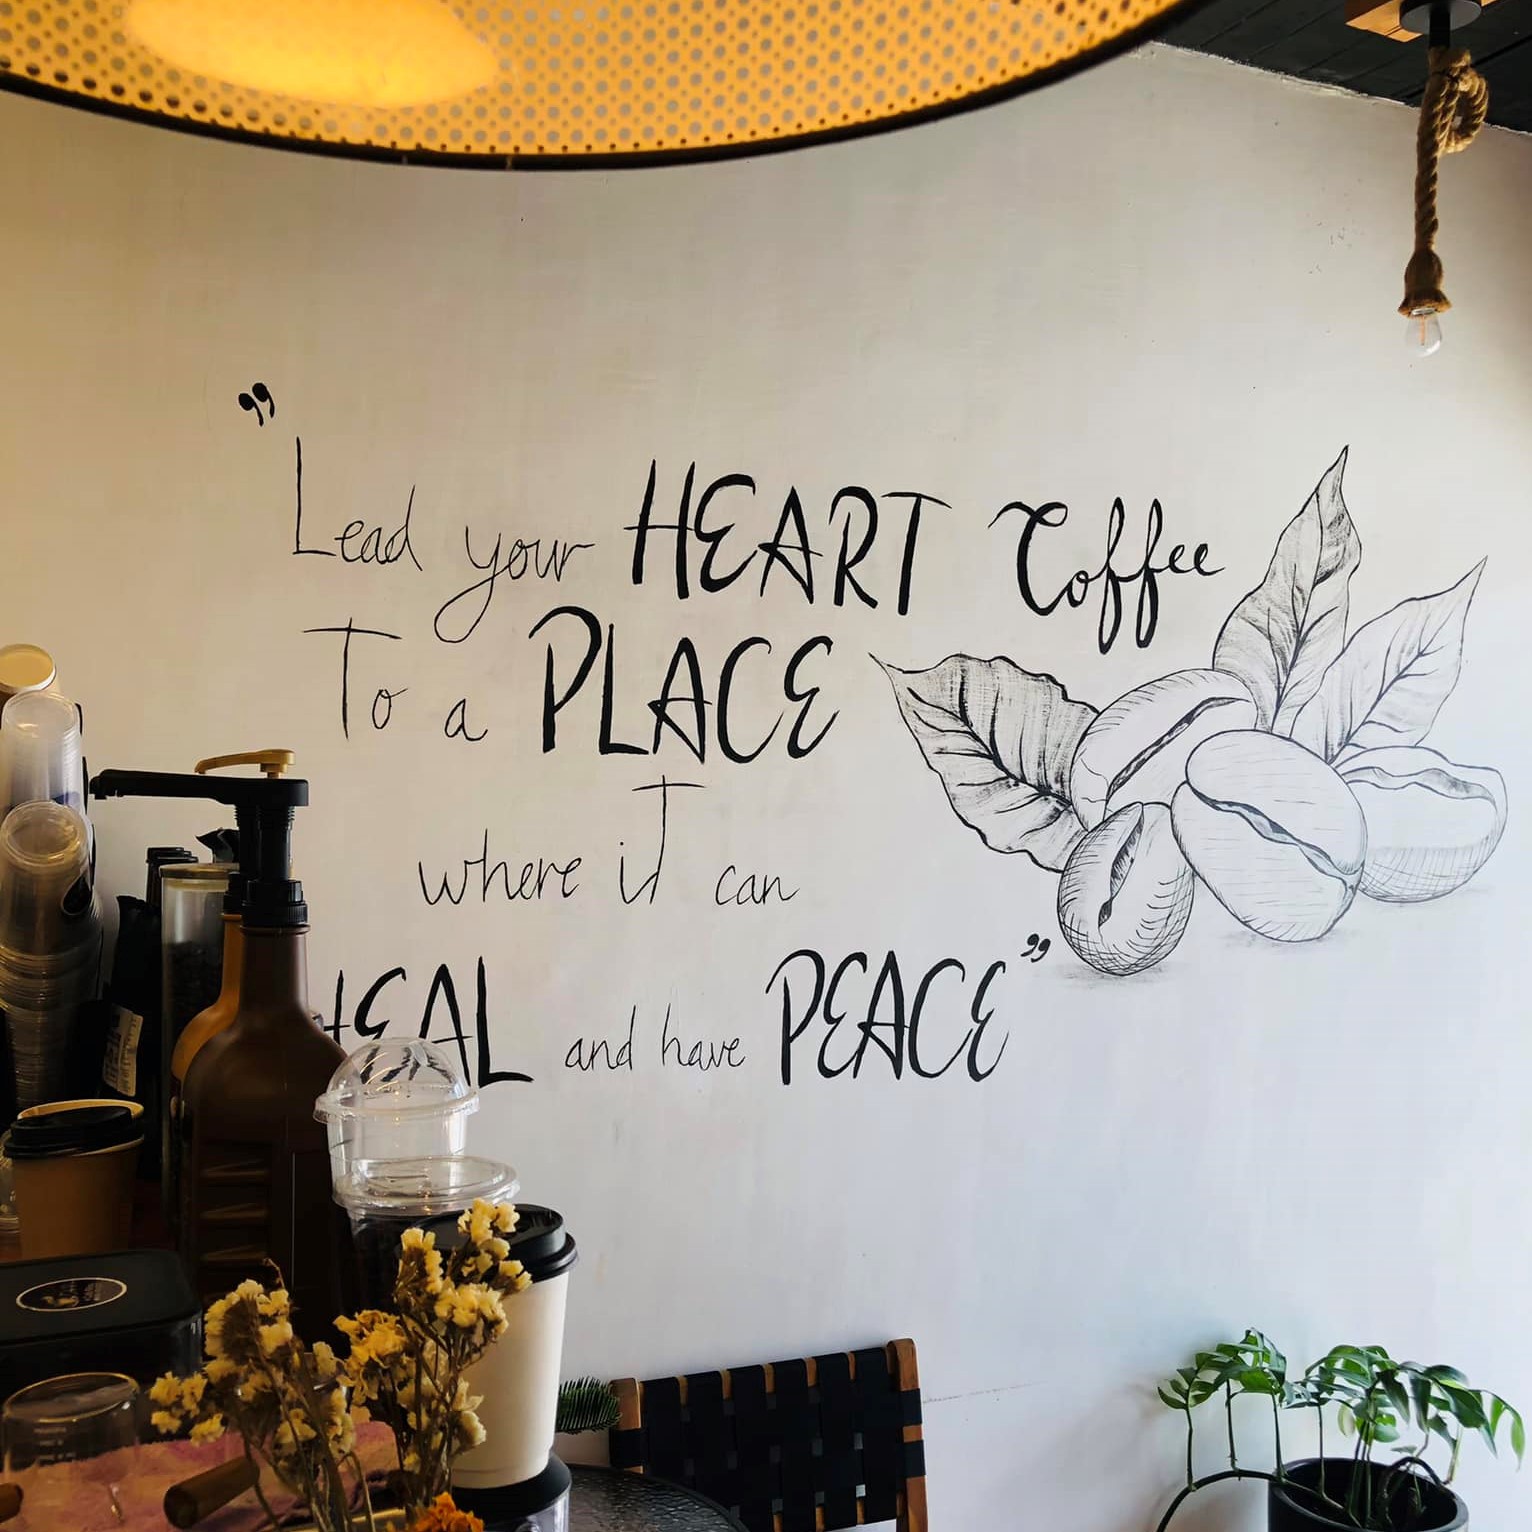 "Lead your HEART Coffee
To a PLACE
where iT can
HEAL and have PEACE"